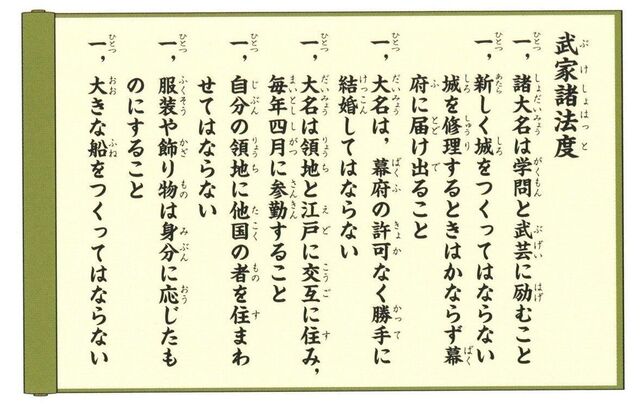 武家諸法度
一，諸大名は学問と武芸に励むこと
一，新しく城をつくってはならない
城を修理するときはかならず幕
府に届け出ること
一，大名は，幕府の許可なく勝手に
結婚してはならない
一，大名は領地と江戸に交互に住み，
毎年四月に参勤すること
一，自分の領地に他国の者を住まわ
せてはならない
一，服装や飾り物は身分に応じたも
のにすること
一，大きな船をつくってはならない